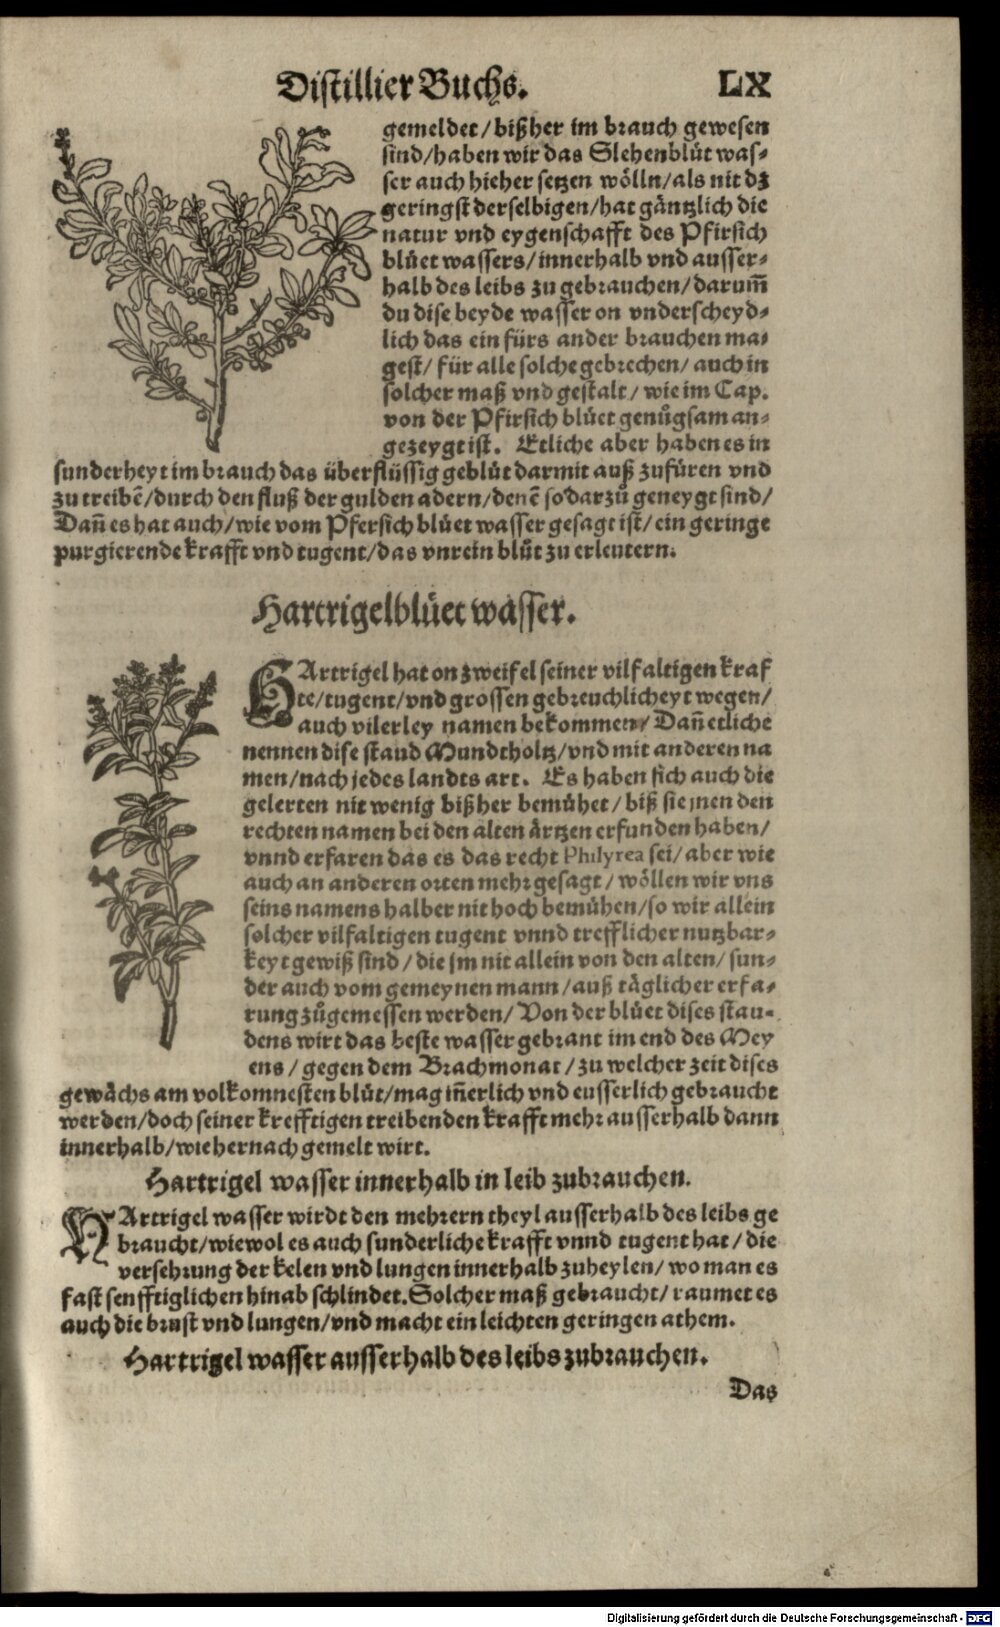 Distillier Buchs. LX
gemeldet/bißher im brauch gewesen
sind/haben wir das Slehenblüt was-
ser auch hieher setzen wölln/als nit dz
geringst derselbigen/hat gäntzlich die
natur vnd eygenschafft des Pfirsich
blüet wassers/innerhalb vnd ausser-
halb des leibs zu gebrauchen/darum̄
du dise beyde wasser on vnderscheyd-
lich das ein fürs ander brauchen ma-
gest/für alle solche gebrechen/auch in
solcher maß vnd gestalt/wie im Cap.
von der Pfirsich blüet genůgsam an-
gezeygt ist. Etliche aber haben es in
sunderheyt im brauch das überflüssig geblüt darmit auß zufüren vnd
zu treibē/durch den fluß der gulden adern/denē so darzů geneygt sind/
Dañ es hat auch/wie vom Pfersich blüet wasser gesagt ist/ein geringe
purgierende krafft vnd tugent/das vnrein blůt zu erleutern.
Hartrigelblüet wasser.
HArtrigel hat on zweifel seiner vilfaltigen kraf
te/tugent/vnd grossen gebreuchlicheyt wegen/
auch vilerley namen bekommen/Dañ etliche
nennen dise staud Mundtholtz/vnd mit anderen na
men/nach jedes landts art. Es haben sich auch die
gelerten nit wenig bißher bemühet/biß sie jnen den
rechten namen bei den alten ärtzen erfunden haben/
vnnd erfaren das es das recht Philyrea sei/aber wie
auch an anderen orten mehr gesagt/wöllen wir vns
seins namens halber nit hoch bemühen/so wir allein
solcher vilfaltigen tugent vnnd trefflicher nutzbar-
keyt gewiß sind/die jm nit allein von den alten/sun-
der auch vom gemeynen mann/auß täglicher erfa-
rung zůgemessen werden/Von der blüet dises stau-
dens wirt das beste wasser gebrant im end des Mey
ens/gegen dem Brachmonat/zu welcher zeit dises
gewächs am volkomnesten blüt/mag iñerlich vnd eusserlich gebraucht
werden/doch seiner krefftigen treibenden krafft mehr ausserhalb dann
innerhalb/wie hernach gemelt wirt.
Hartrigel wasser innerhalb in leib zubrauchen.
HArtrigel wasser wirdt den mehrern theyl ausserhalb des leibs ge
braucht/wiewol es auch sunderliche krafft vnnd tugent hat/die
versehrung der kelen vnd lungen innerhalb zuheylen/wo man es
fast senfftiglichen hinab schlindet. Solcher maß gebraucht/raumet es
auch die brust vnd lungen/vnd macht ein leichten geringen athem.
Hartrigel wasser ausserhalb des leibs zubrauchen.
Das
Digitalisierung gefördert durch die Deutsche Forschungsgemeinschaft - DFG